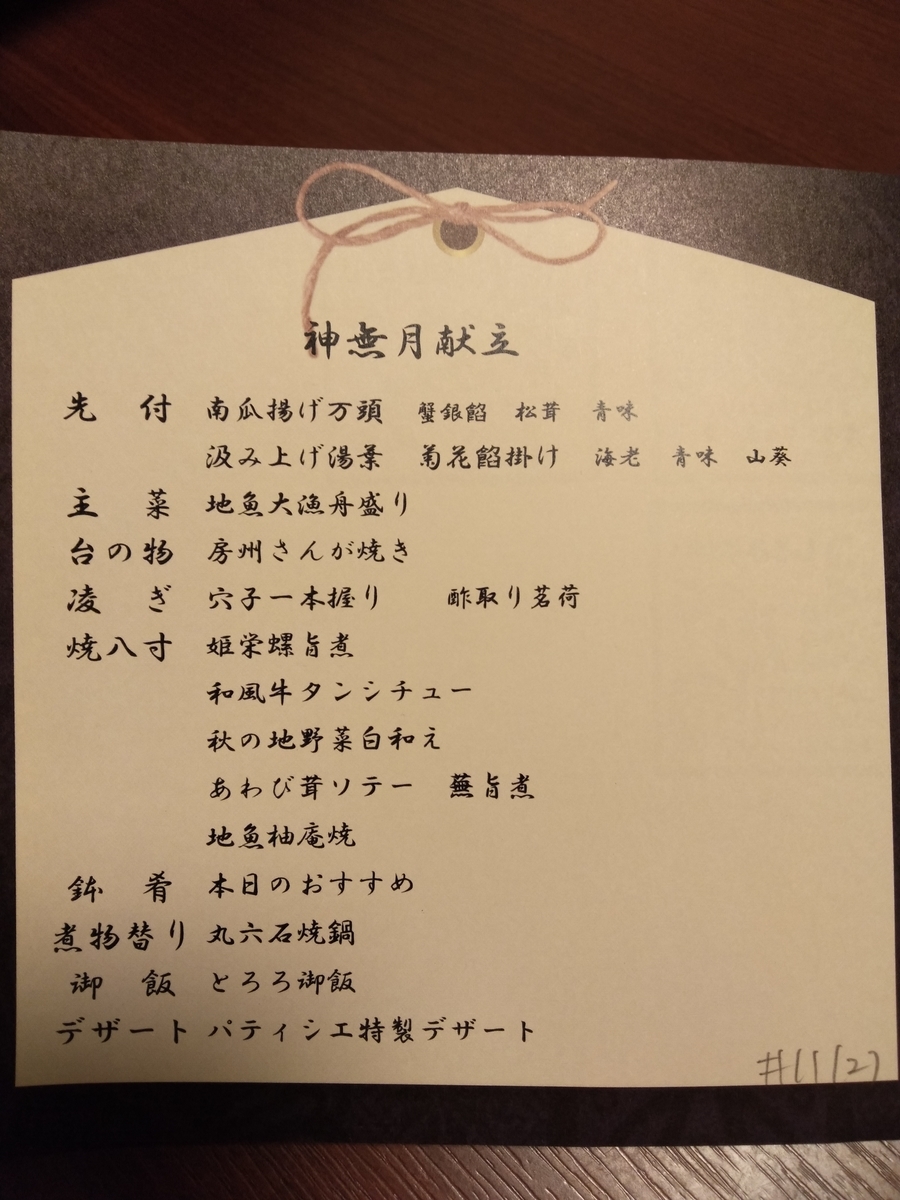 神無月献立
先付 南瓜揚げ万頭 蟹銀餡 松茸 青味
汲み上げ湯葉 菊花餡掛け 海老 青味 山葵
主菜 地魚大漁舟盛り
台の物 房州さんが焼き
凌ぎ 穴子一本握り 酢取り茗荷
焼八寸 姫栄螺旨煮
和風牛タンシチュー
秋の地野菜白和え
あわび茸ソテー 蕪旨煮
地魚柚庵焼
鉢肴 本日のおすすめ
煮物替り 丸六石焼鍋
御飯 とろろ御飯
デザート パティシエ特製デザート